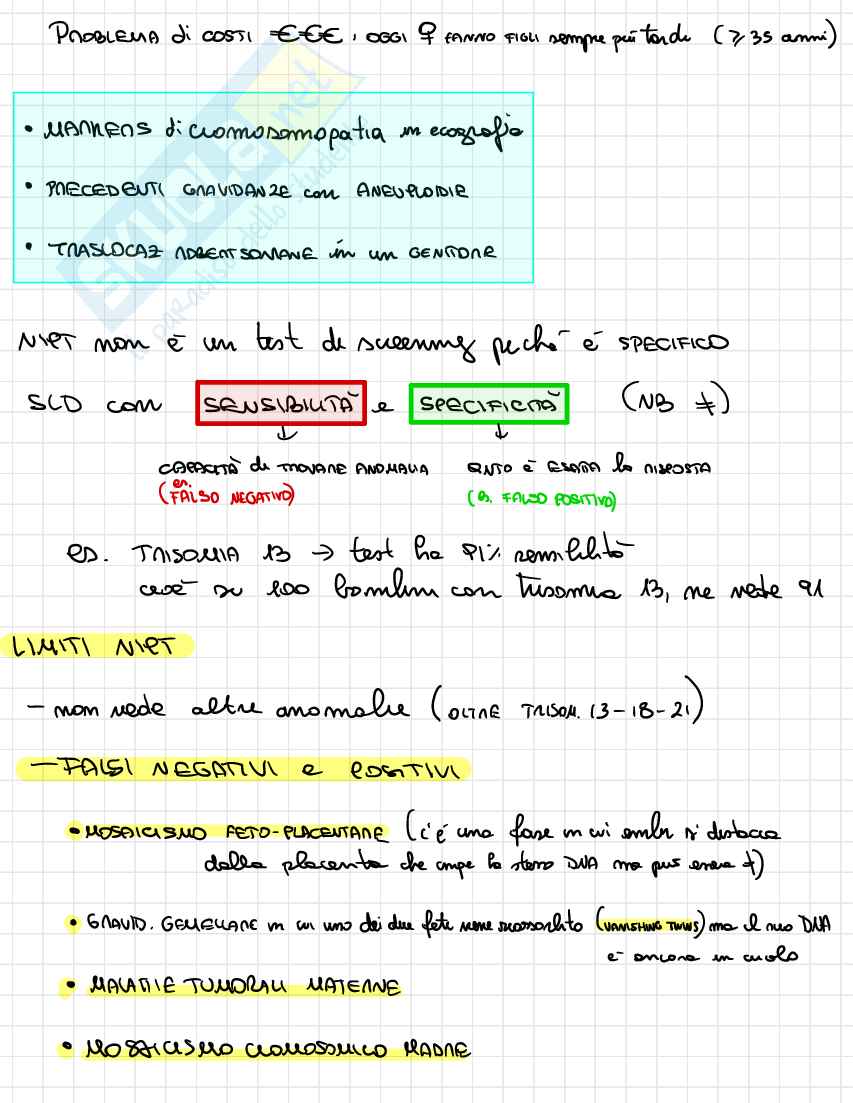 PROBLEMA di COSTI €€€, OGGI ♀ FANNO FIGLI sempre più tardi (⩾ 35 anni)
• MARKERS di cromosomopatia in ecografia
• PRECEDENTI GRAVIDANZE con ANEUPLODIE
• TRASLOCAZ ROBERTSONIANE in un GENITORE
SKUOLA.net
il paradiso dello studente
NIPT non è un test di screening perché è SPECIFICO
SCD com SENSIBILITÀ e SPECIFICITÀ (NB ≠)
↓ ↓
CAPACITÀ di TROVARE ANOMALIA QNTO È ESATTA la RISPOSTA
(es. FALSO NEGATIVO) (es. FALSO POSITIVO)
es. TRISOMIA 13 → test ha 91% sensibilità
cioè su 100 bambini con Trisomia 13, ne vede 91
LIMITI NIPT
- non vede altre anomalie (OLTRE TRISOM. 13-18-21)
- FALSI NEGATIVI e POSITIVI
• MOSAICISMO FETO-PLACENTARE (c'è una fase in cui embr si distacca
dalla placenta che ha lo stesso DNA ma può essere ≠)
• GRAVID. GEMELLARE in cui uno dei due feti viene riassorbito (VANISHING TWINS) ma il suo DNA
è ancora in circolo
• MALATTIE TUMORALI MATERNE
• MOSAICISMO CROMOSOMICO MADRE